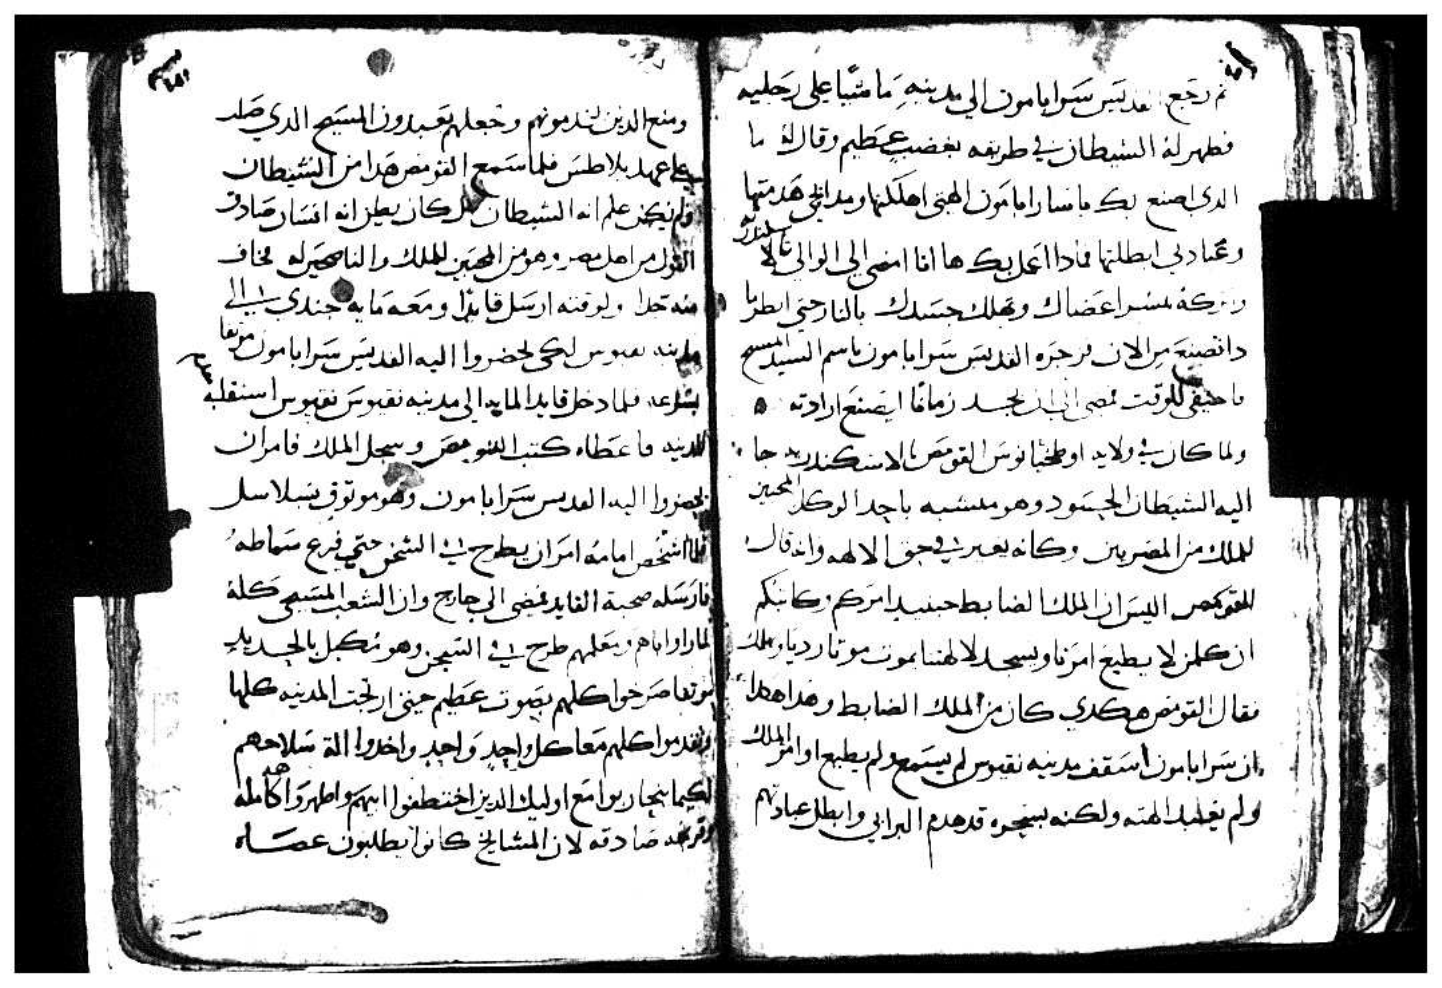 ثم رجع القديس سرابامون الي مدينه ماشيا علي رجليه
فظهر له الشيطان في طريقه بغضب عظيم وقال له ما
الدي اصنع بك يا سارابامون الهتي اهلكتها ومدابحي هدمتها
وعبادتي ابطلتها فمادا اعمل بك ها انا امضي الي الوالي
يكسر اعضاك ويهلك جسدك بالنار حتي انظر ما
دا تصنع من الان فزجره القديس سرابامون باسم السيد المسيح
فاختفي للوقت فمضي الي ان يجد زمانا ليصنع ارادته
ولما كان في ولاية اوطخيانوس القومص بالاسكندريه جا
اليه الشيطان الحسود وهو متشبه باحد المحبين
للملك من المصريين وكانه يغير في حق الالهه وانه قال
للقومص اليس ان الملك الضابط حينيد امركم وكاتبكم
ان كلمن لا يطيع امرنا ويسجد لالهتنا يموت موتا رديا
فقال القومص هكدي كان من الملك الضابط وهدا هكدا
ان سرابامون اسقف مدينه نقيوس لم يستمع ولم يطيع اوامر الملك
ولم يعبد الهته ولكنه بسحره قد هدم البرابي وابطل عبادتهم
ومنع الدين يخدمونهم وجعلهم يعبدون المسيح الدي صلب
علي عهد بلاطس فلما سمع القومص هدا من الشيطان
ولم يكن علم انه الشيطان بل كان يظن انه انسان صادق
القول من اهل مصر وهو من المحبين للملك والناصحين له فخاف
منه جدا ولوقته ارسل قايدا ومعه مايه جندي الي
مدينه نقيوس لكي يحضروا اليه القديس سرابامون موثقا
بسرعه فلما دخل قايد المايه الي مدينه نقيوس استقبله
المدينه فاعطاه كتب القومص وسجل الملك فامر ان
يحضروا اليه القديس سرابامون وهو موثوق بسلاسل
فلما اشخص امامه امر ان يطرح في السجن حتي فرغ سماطه
فارسله صحبة القايد فمضي الي خارج وان الشعب المسيحي كله
لما راوا اباهم ومعلمهم طرح في السجن وهو مكبل بالحديد
موثقا صرخوا كلهم بصوت عظيم حتي ارتجت المدينه كلها
وتقدموا كلهم معا كل واحد واحد واخدوا الة سلاحهم
لكيما يتحاربوا مع اوليك الدين اختطفوا ابيهم واظهروا
صادقه لان المشايخ كانوا يطلبون عصاه